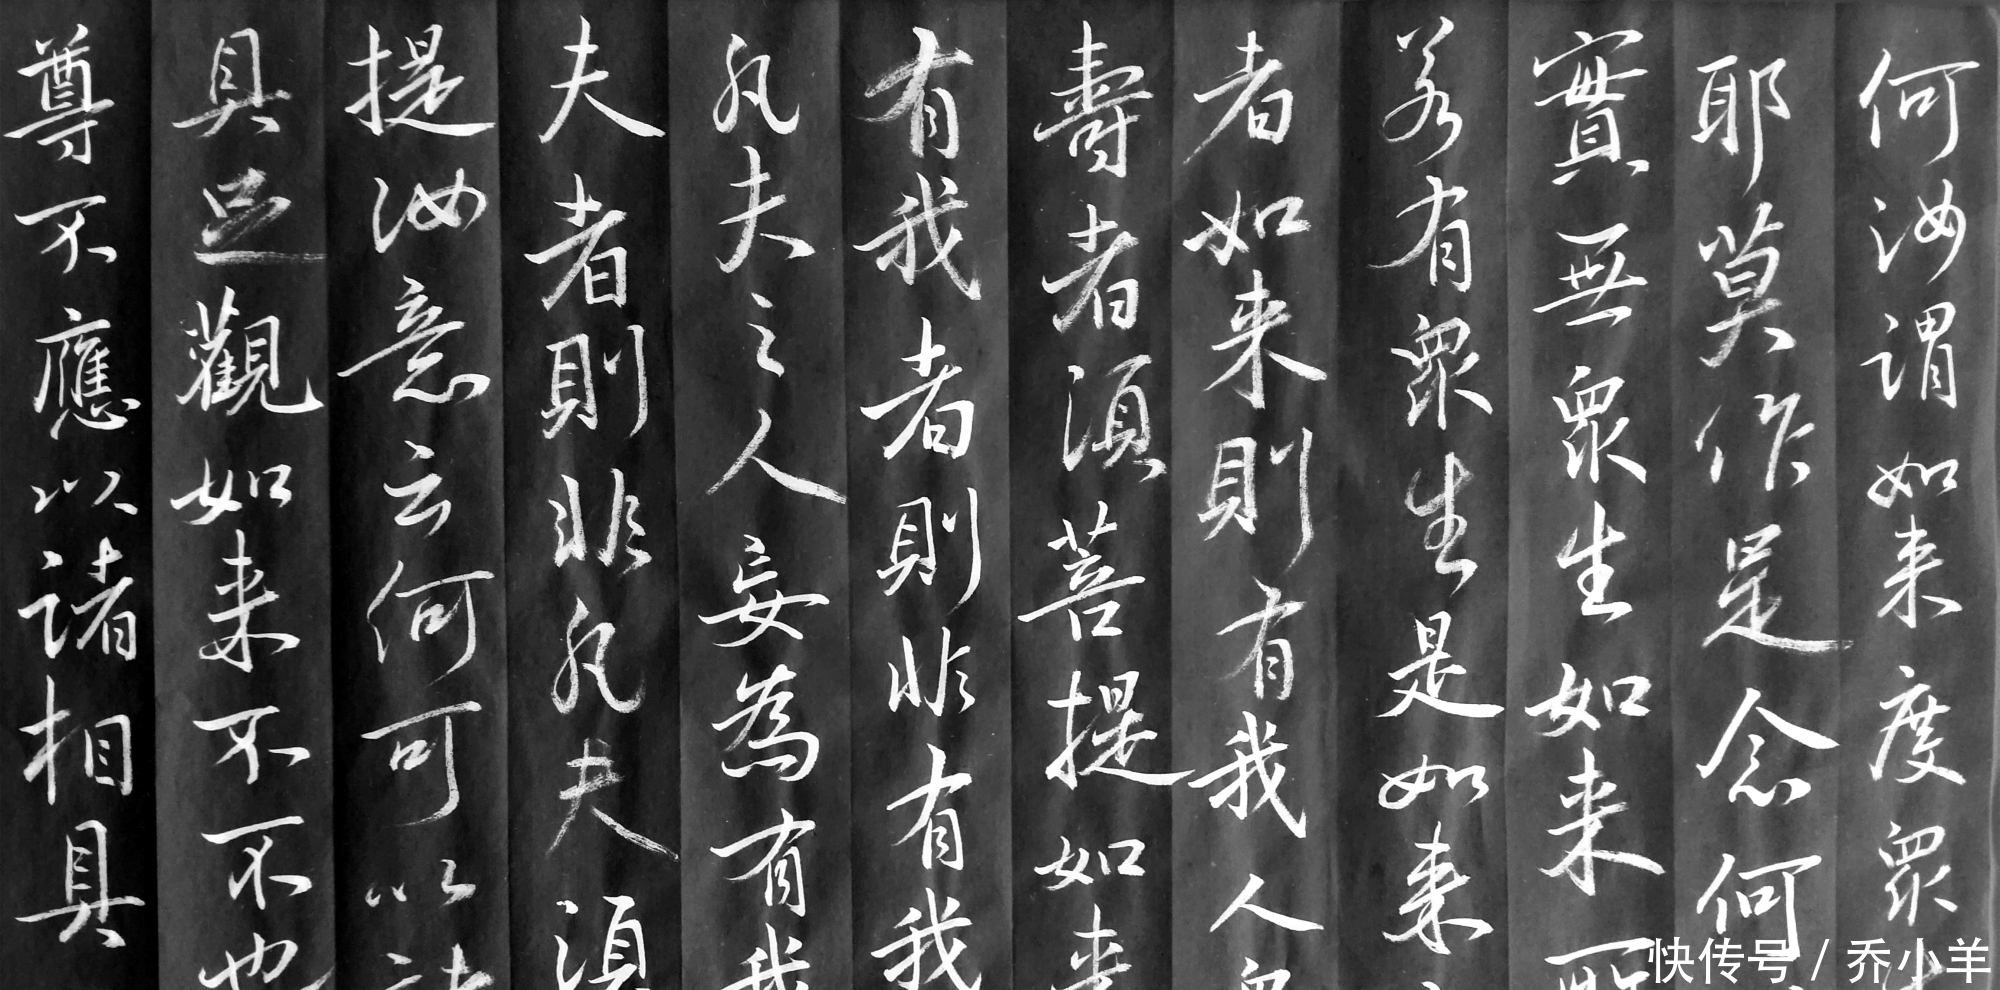 何汝谓如来度衆
耶莫作是念何
實無衆生如来所
若有衆生是如来
者如来則有我人衆
壽者須菩提如来
有我者則非有我
凡夫之人妄為有我
夫者則非凡夫須
提汝意云何可以諸
具足觀如来不不也
尊不應以諸相具
快传号 / 乔小羊